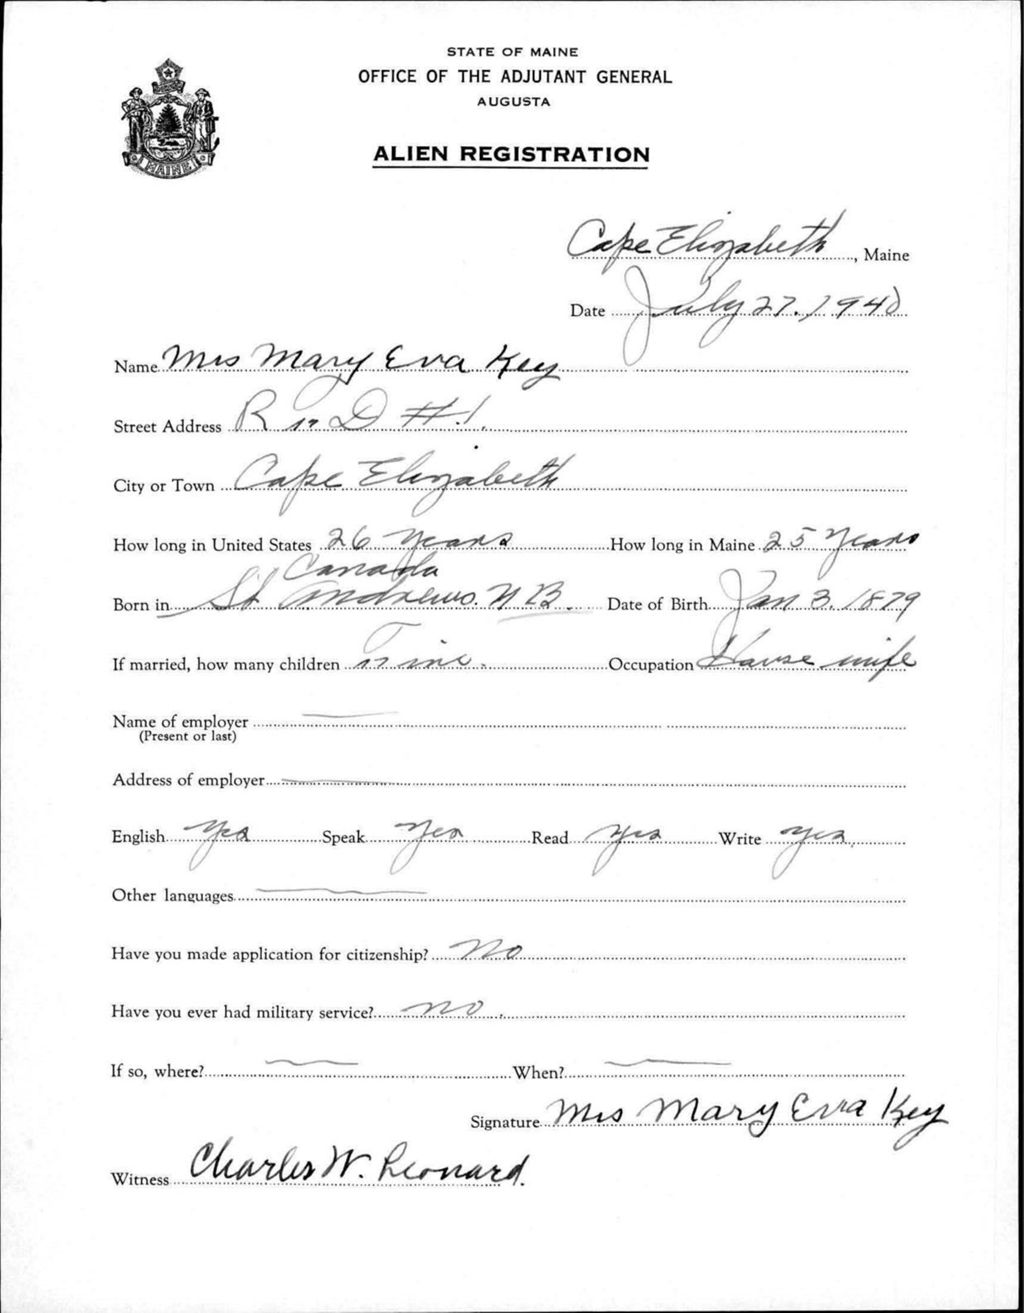 STATE OF MAINE
OFFICE OF THE ADJUTANT GENERAL
AUGUSTA
ALIEN REGISTRATION
MAINE
Cape Elizabeth, Maine
Date July 27, 1940
Name Mrs Mary Eva Key
Street Address R D #1.
City or Town Cape Elizabeth
How long in United States 26 Years How long in Maine 25 Years
Canada
Born in St Andrews. N B. Date of Birth Jan 3, 1879
If married, how many children Occupation House wife
Name of employer
(Present or last)
Address of employer
English Yes Speak Yes Read Yes Write Yes
Other languages
Have you made application for citizenship? No
Have you ever had military service? No.
If so, where? When?
Signature Mrs Mary Eva Key
Witness Charles W. Leonard.